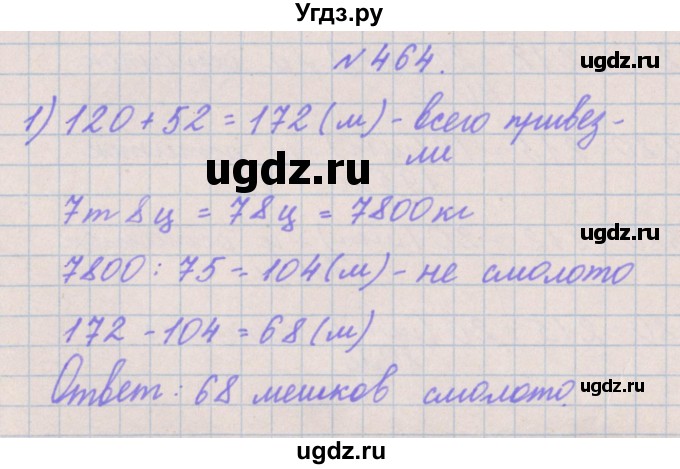 Угдз.ру
№464.
1) 120 + 52 = 172 (м) - всего привез-
ugdz.ru
ми
ugdz.ru
7т 8ц = 78ц = 7800кг
ugdz.ru
7800 : 75 = 104 (м) - не смолото
172 - 104 = 68 (м)
ugdz.ru
Ответ: 68 мешков смолото.
ugdz.ru